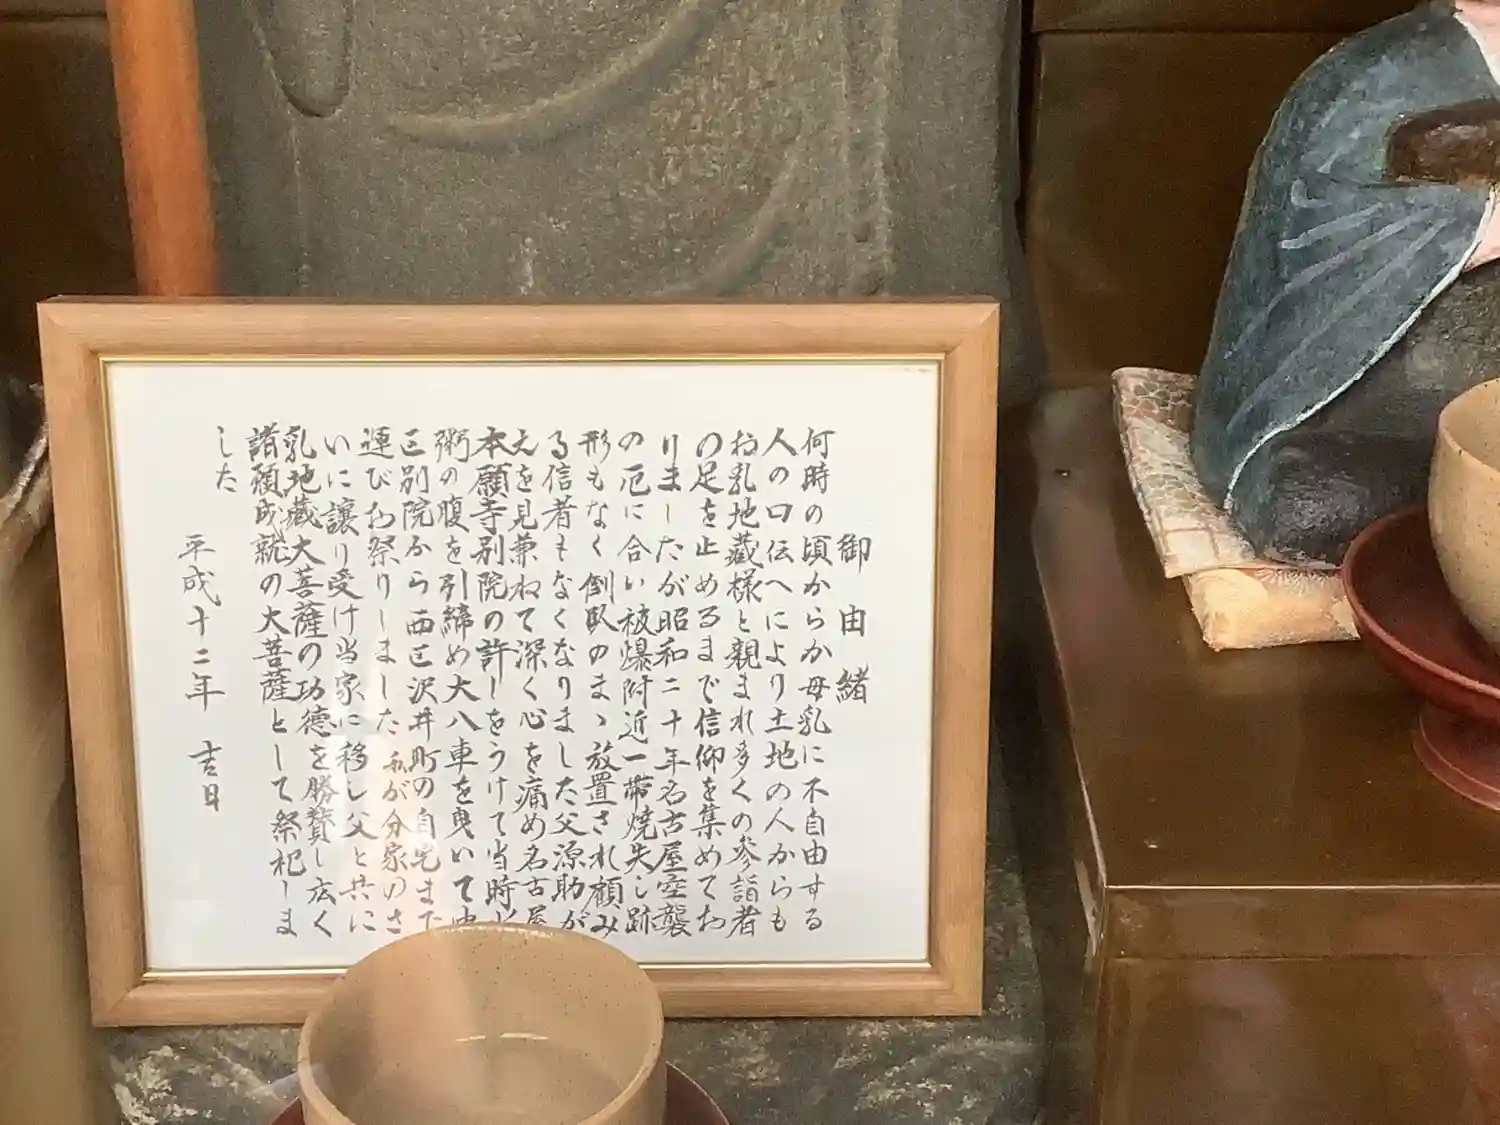 御由緒
何時の頃からか母乳に不自由する
人の口伝へにより土地の人からも
お乳地蔵様と親まれ多くの参詣者
の足を止めるまで信仰を集めてお
りましたが昭和二十年名古屋空襲
の厄に合い被爆附近一帯焼失し跡
形もなく倒臥のまゝ放置され顧み
る信者もなくなりました父源助が
えを見兼ねて深く心を痛め名古屋
本願寺別院の許しをうけて当時
粥の腹を引締め大八車を曳いて
区別院から西区沢井町の自宅まで
運びお祭りしました私が分家のさ
いに譲り受け当家に移し父と共に
乳地蔵大菩薩の功徳を勝賛し広く
諸願成就の大菩薩として祭祀しま
した
平成十二年 吉日